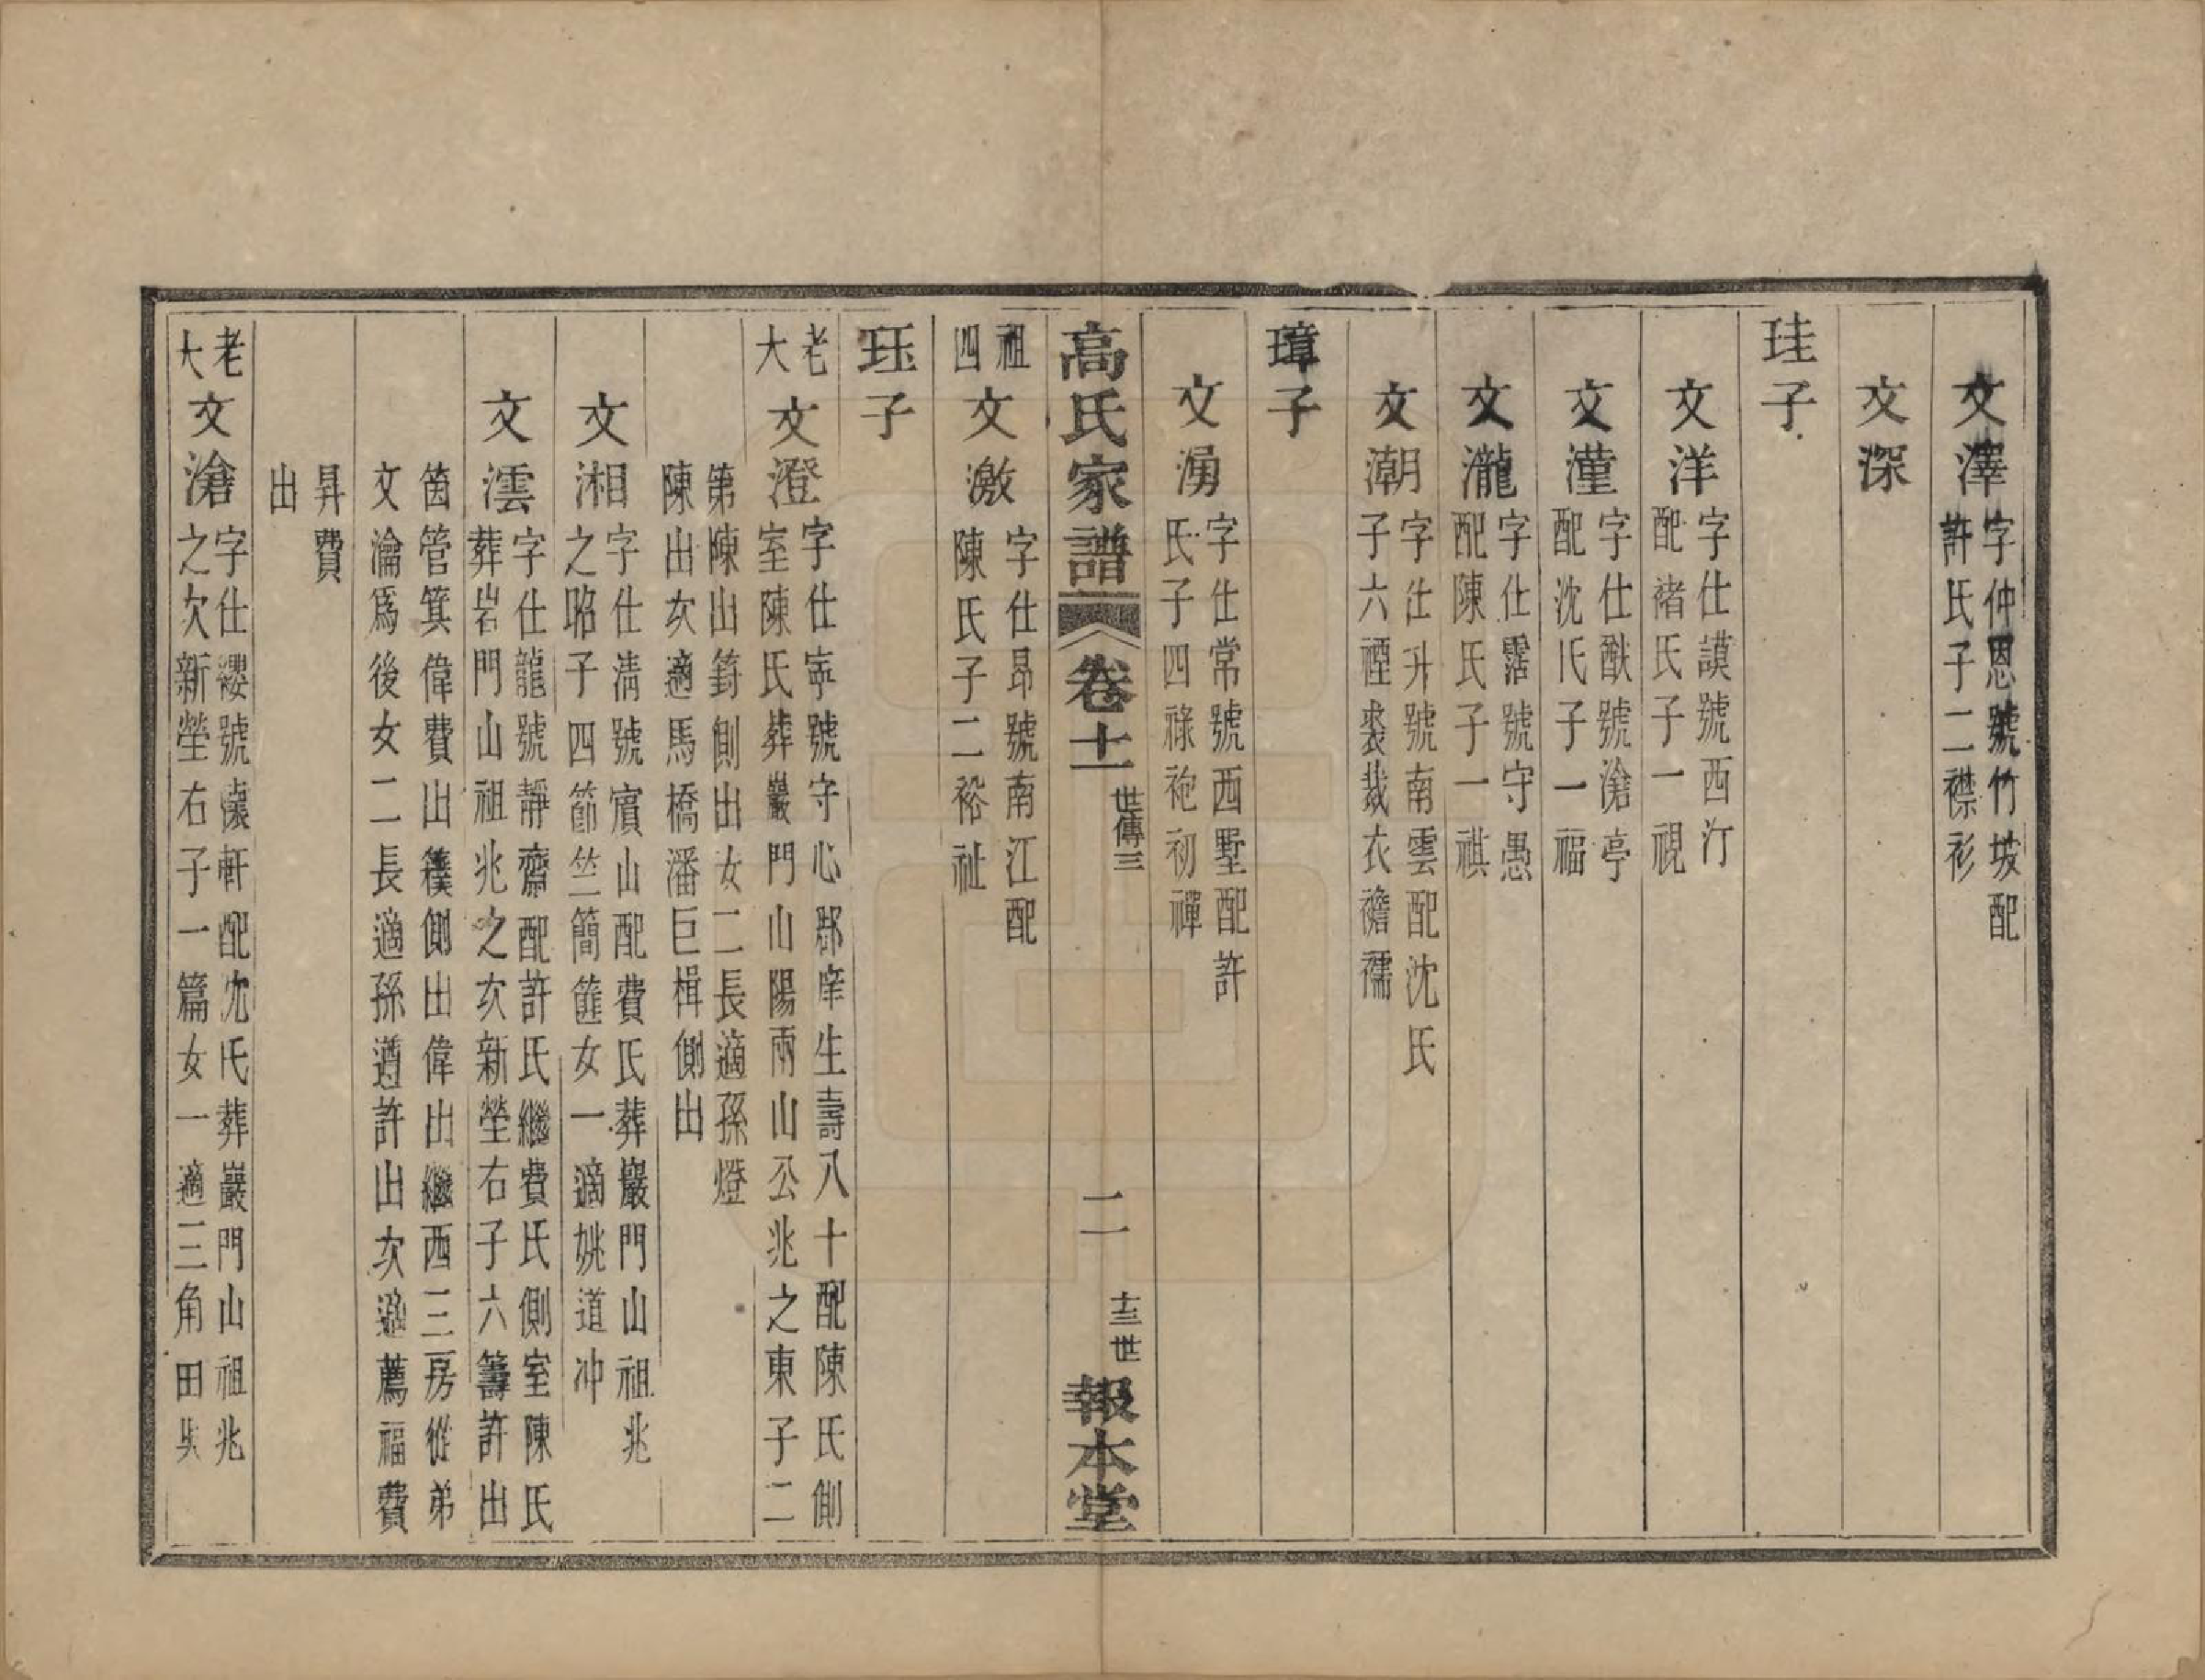 文澤 字仲恩號竹坡配
許氏子二襟衫
文深
珪子
文洋 字仕謨號西汀
配褚氏子一視
文漌 字仕猷號滄亭
配沈氏子一福
文瀧 字仕霑號守愚
配陳氏子一祺
文潮 字仕升號南雲配沈氏
子六禋裘裁衣襜襦
璋子
文湧 字仕常號西墅配許
氏子四祿袍初禪
高氏家譜 卷十一 世傳三 二 十三世 報本堂
祖四 文激 字仕昂號南江配
陳氏子二裕祉
珏子
老大 文澄 字仕寧號守心郡庠生壽八十配陳氏側
室陳氏葬巖門山陽兩山公兆之東子二
第陳出篈側出女二長適孫燈
陳出次適馬橋潘巨楫側出
文湘 字仕淸號濵山配費氏葬巖門山祖兆
之昭子四節竺簡篚女一適姚道冲
文澐 字仕龍號靜齋配許氏繼費氏側室陳氏
葬岩門山祖兆之次新塋右子六籌許出
箘管箕偉費出䉟側出偉出繼西三房從弟
文瀹爲後女二長適孫遵許出次適薦福費
昇費
出
老大 文滄 字仕纓號懹軒配沈氏葬巖門山祖兆
之次新塋右子一篇女一適三角田吳